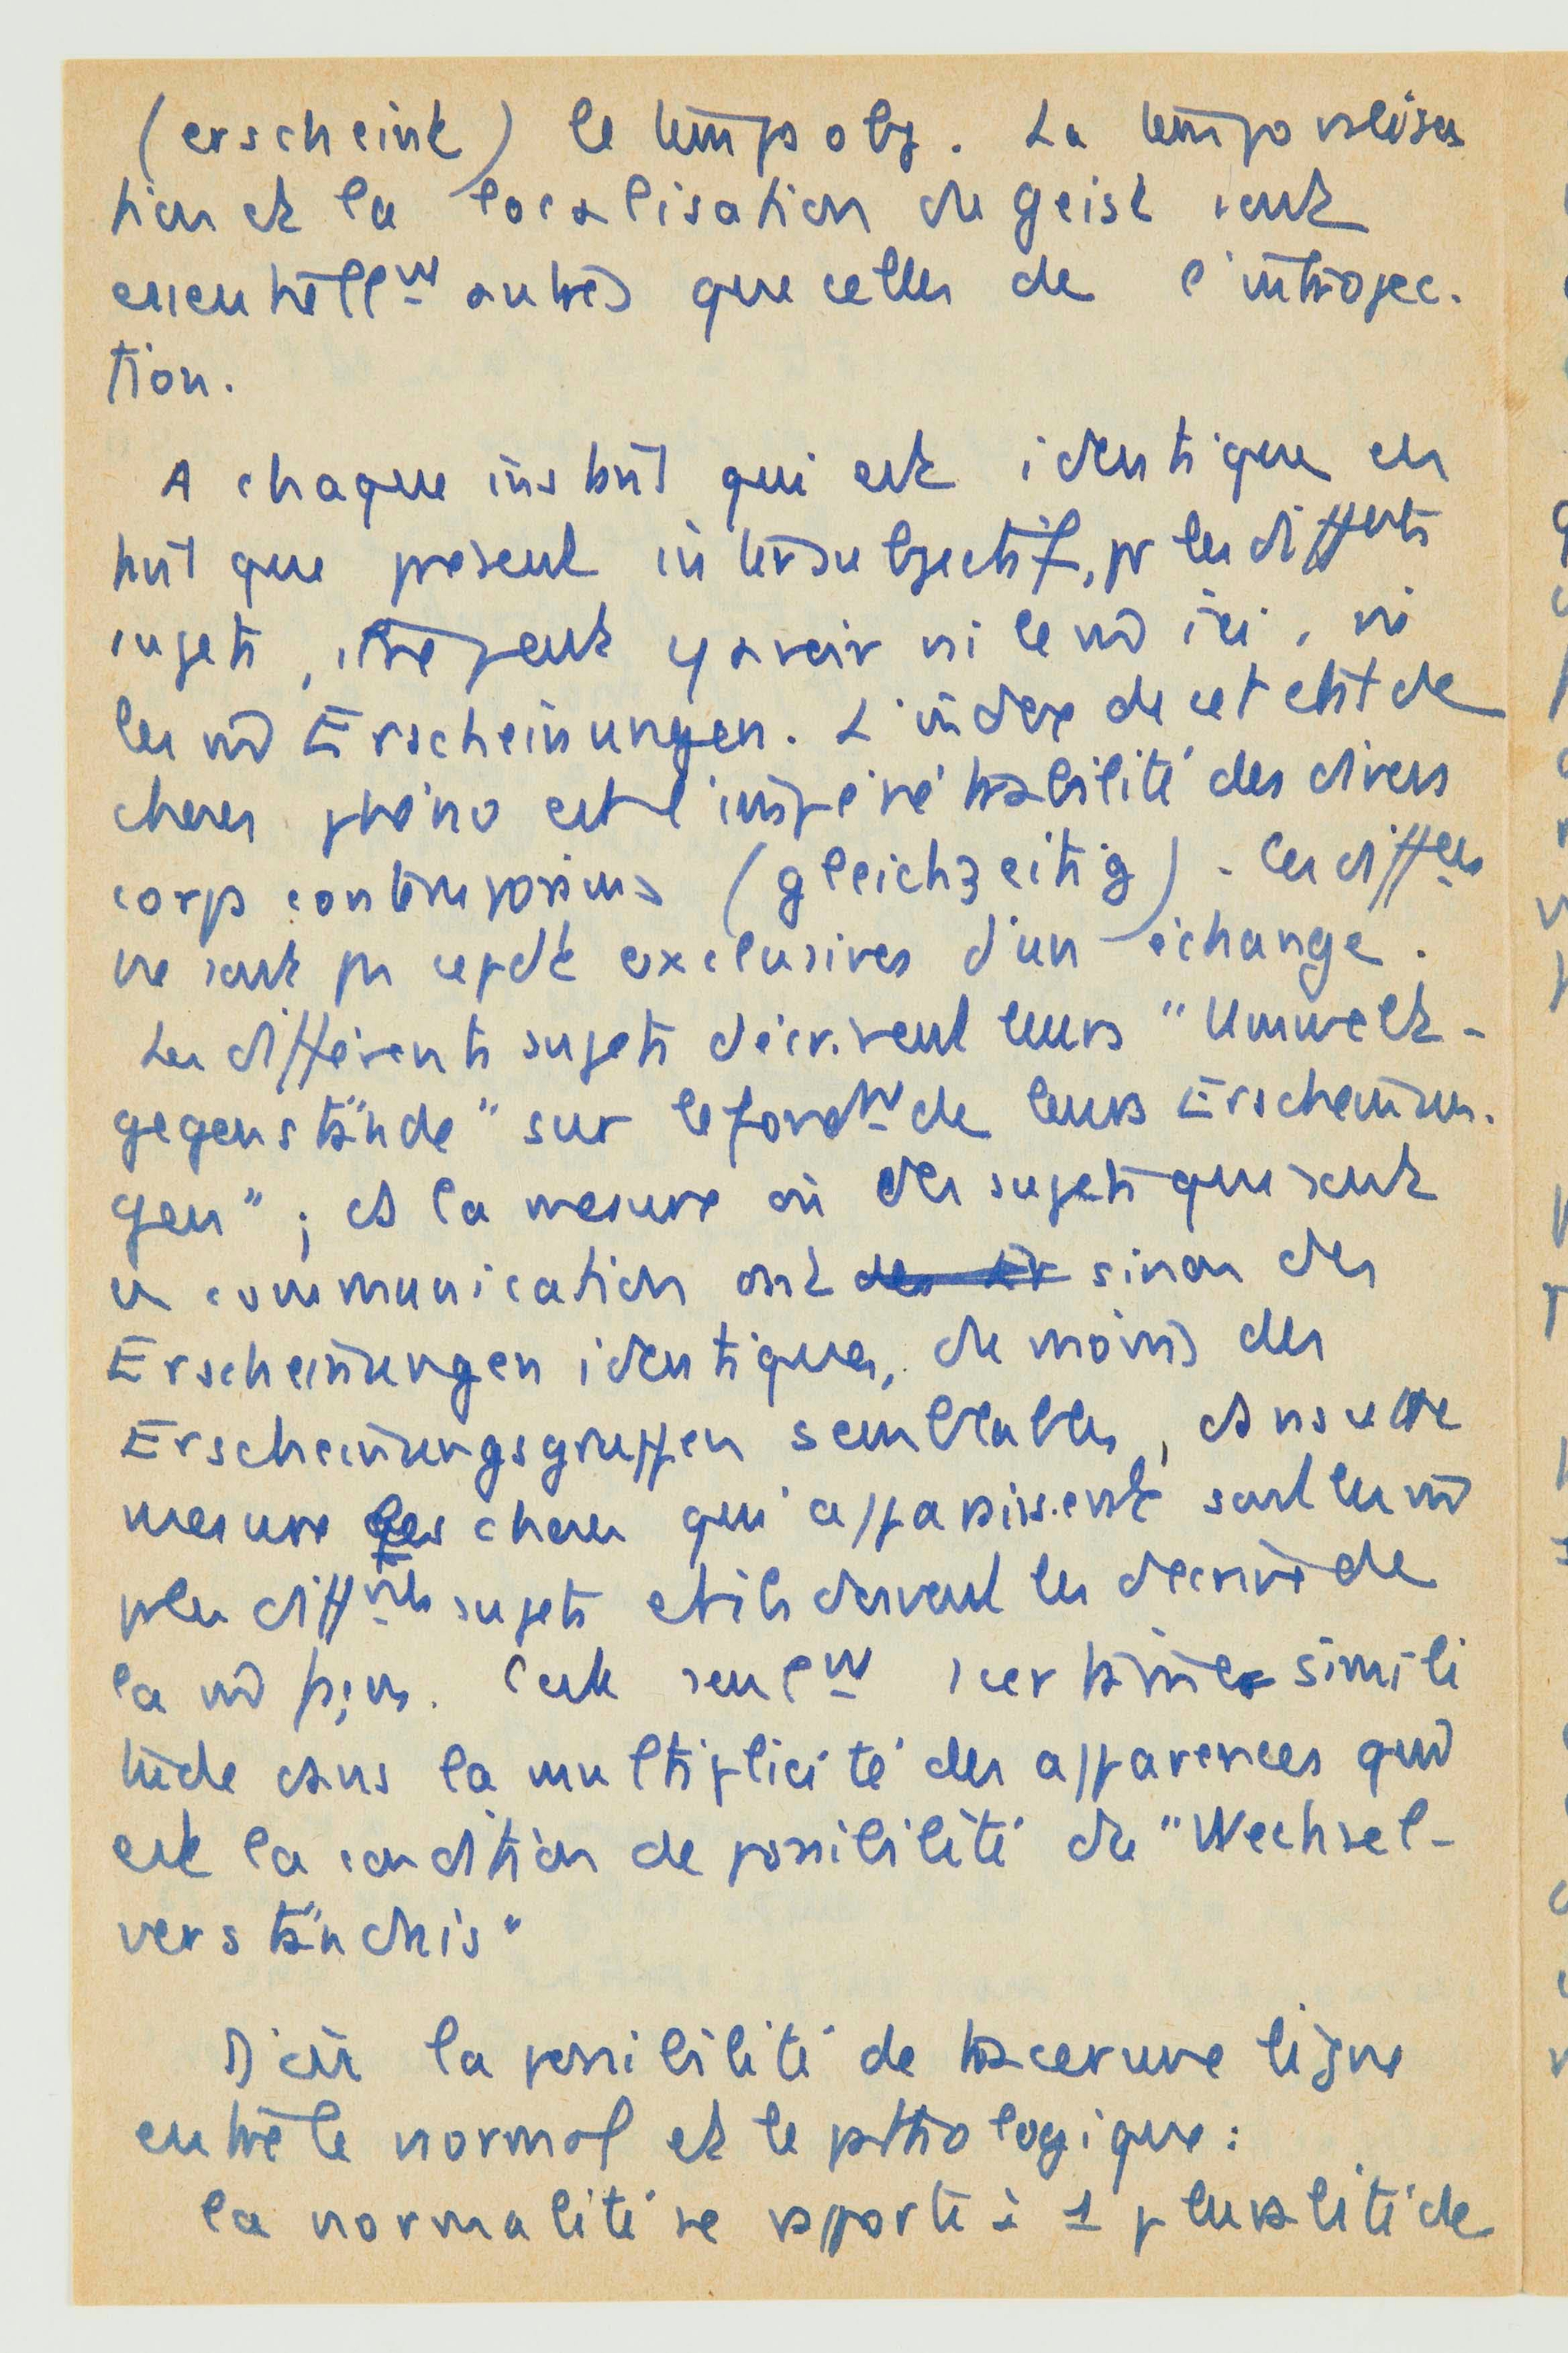 (erscheint) le temps obj. La temporalisa
tion et la localisation du geist sont
essentiellm autres que celles de l'introjec.
tion.
A chaque instant qui est identique en
tant que présent intersubjectif, pr les diffents
sujets, il ne peut y avoir ni le m̄ ici, ni
les m̄ Erscheinungen. L'index de cet état de
choses phéno est l'impénétrabilité des divers
corps contemporains (gleichzeitig). Les diffces
ne sont pas cepdt exclusives d'un échange.
Les différents sujets décrivent leurs "Umwelt-
gegenstände" sur le fondm de leurs Erscheinun.
gen"; ds la mesure où des sujets qui sont
en communication ont des Er sinon des
Erscheinungen identiques, du moins des
Erscheinungsgruppen semblables, dans cette
mesure les choses qui apparaissent sont les m̄
pr les différts sujets et ils doivent les décrire de
la m̄ façon. C'est seulm 1 certaine simili
tude dans la multiplicité des apparences qui
est la condition de possibilité du "Wechsel-
verständnis"
D'où la possibilité de tracer une ligne
entre le normal et le pathologique:
la normalité se rapporte à 1 pluralité de